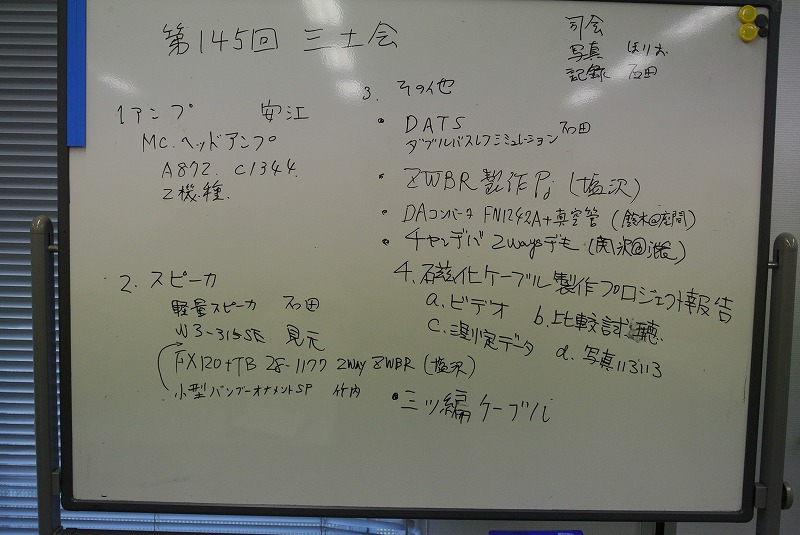 第145回 三土会
司会
写真 ほりお
記録 石田
1アンプ 安江
MC.ヘッドアンプ
A872. C1344.
2機種.
2. スピーカ
軽量スピーカ 石田
W3-315SE 見元
FX120+TB 28-1177 2way ZWBR (塩沢)
小型バンブーオナメントSP 竹内
3. その他
• DATS 石田
ダブルバスレフシミュレーション
• ZWBR 製作Pj (塩沢)
• DAコンバータ FN1242A+真空管 (鈴木@座間)
• チャンデバ 2waysデモ
4. 磁化ケーブル製作プロジェクト報告
a. ビデオ b. 比較試聴.
c. 測定データ d. 写真いろいろ
• 三ツ編ケーブル